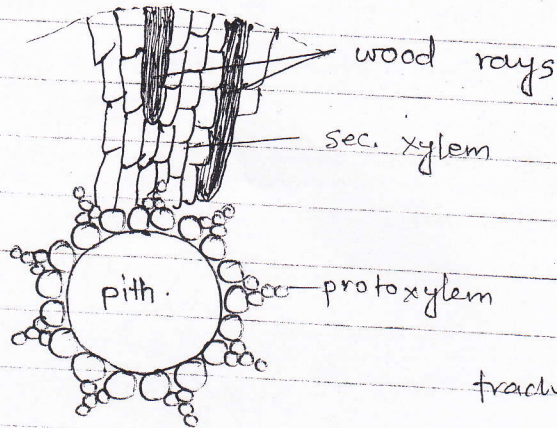 wood rays
sec. xylem
pith.
protoxylem